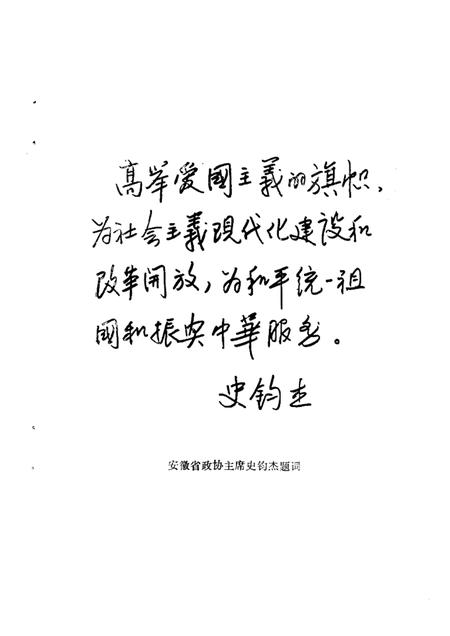 高举爱國主義的旗帜，
为社会主義現代化建设和
改革開放，为和平统一祖
國和振兴中華服务。
史钧杰
安徽省政协主席史钧杰题词